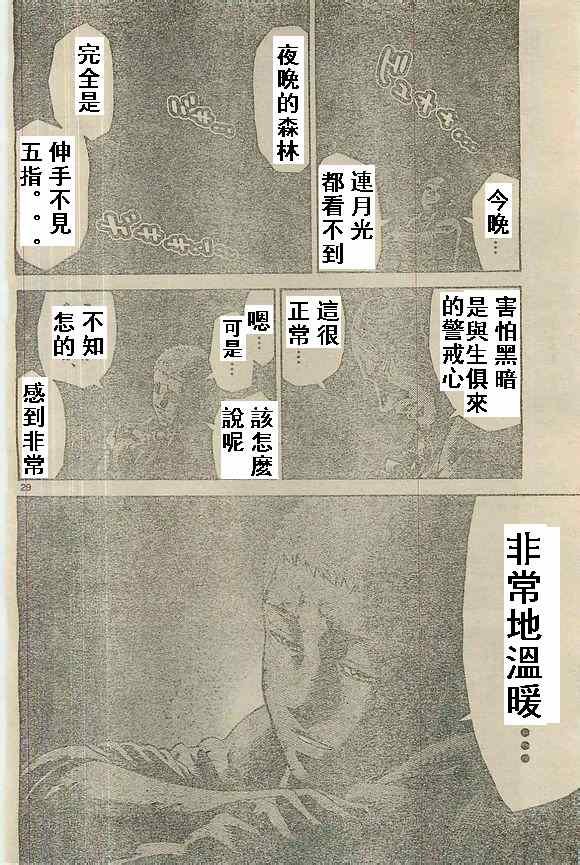 今晚····
連月光
都看不到
夜晚的森林
完全是
伸手不見
五指。。。
害怕黑暗
是與生俱來
的警戒心
這很
正常····
嗯····
可是····
該怎麼
說呢
不知
怎的、
感到非常
29
非常地溫暖····